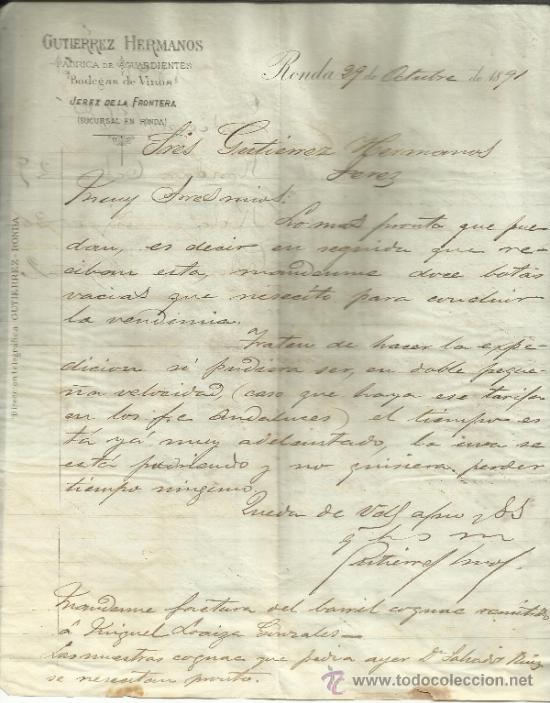 GUTIERREZ HERMANOS
FABRICA DE AGUARDIENTES
Bodegas de Vinos
JEREZ DE LA FRONTERA
(SUCURSAL EN RONDA)
Ronda 29 de Octubre de 1891
Sres Gutierrez Hermanos
Jerez
Muy Sres mios:
Lo mas pronto que pue-
dan, es decir en seguida que re-
ciban esta, mandenme doce botas
vacias que nesecito para concluir
la vendimia.
Traten de hacer la expe-
dicion si pudiera ser, en doble peque-
ña velocidad, (caso que haya ese tarifa
en los f.c Andaluces) el tiempo es
tá yá muy adelantado, la uva se
está pudriendo y no quisiera perder
tiempo ninguno.
Queda de Vds afmo y SS
q b s m
Gutierrez Hnos
Mandenme factura del barril cognac remitido
á Miguel Loaiza Gonzales—
Las muestras cognac que pedia ayer Dn Salvador Ruiz
se nesecitan pronto.
Dirección telegráfica GUTIERREZ-RONDA
todocoleccion.net